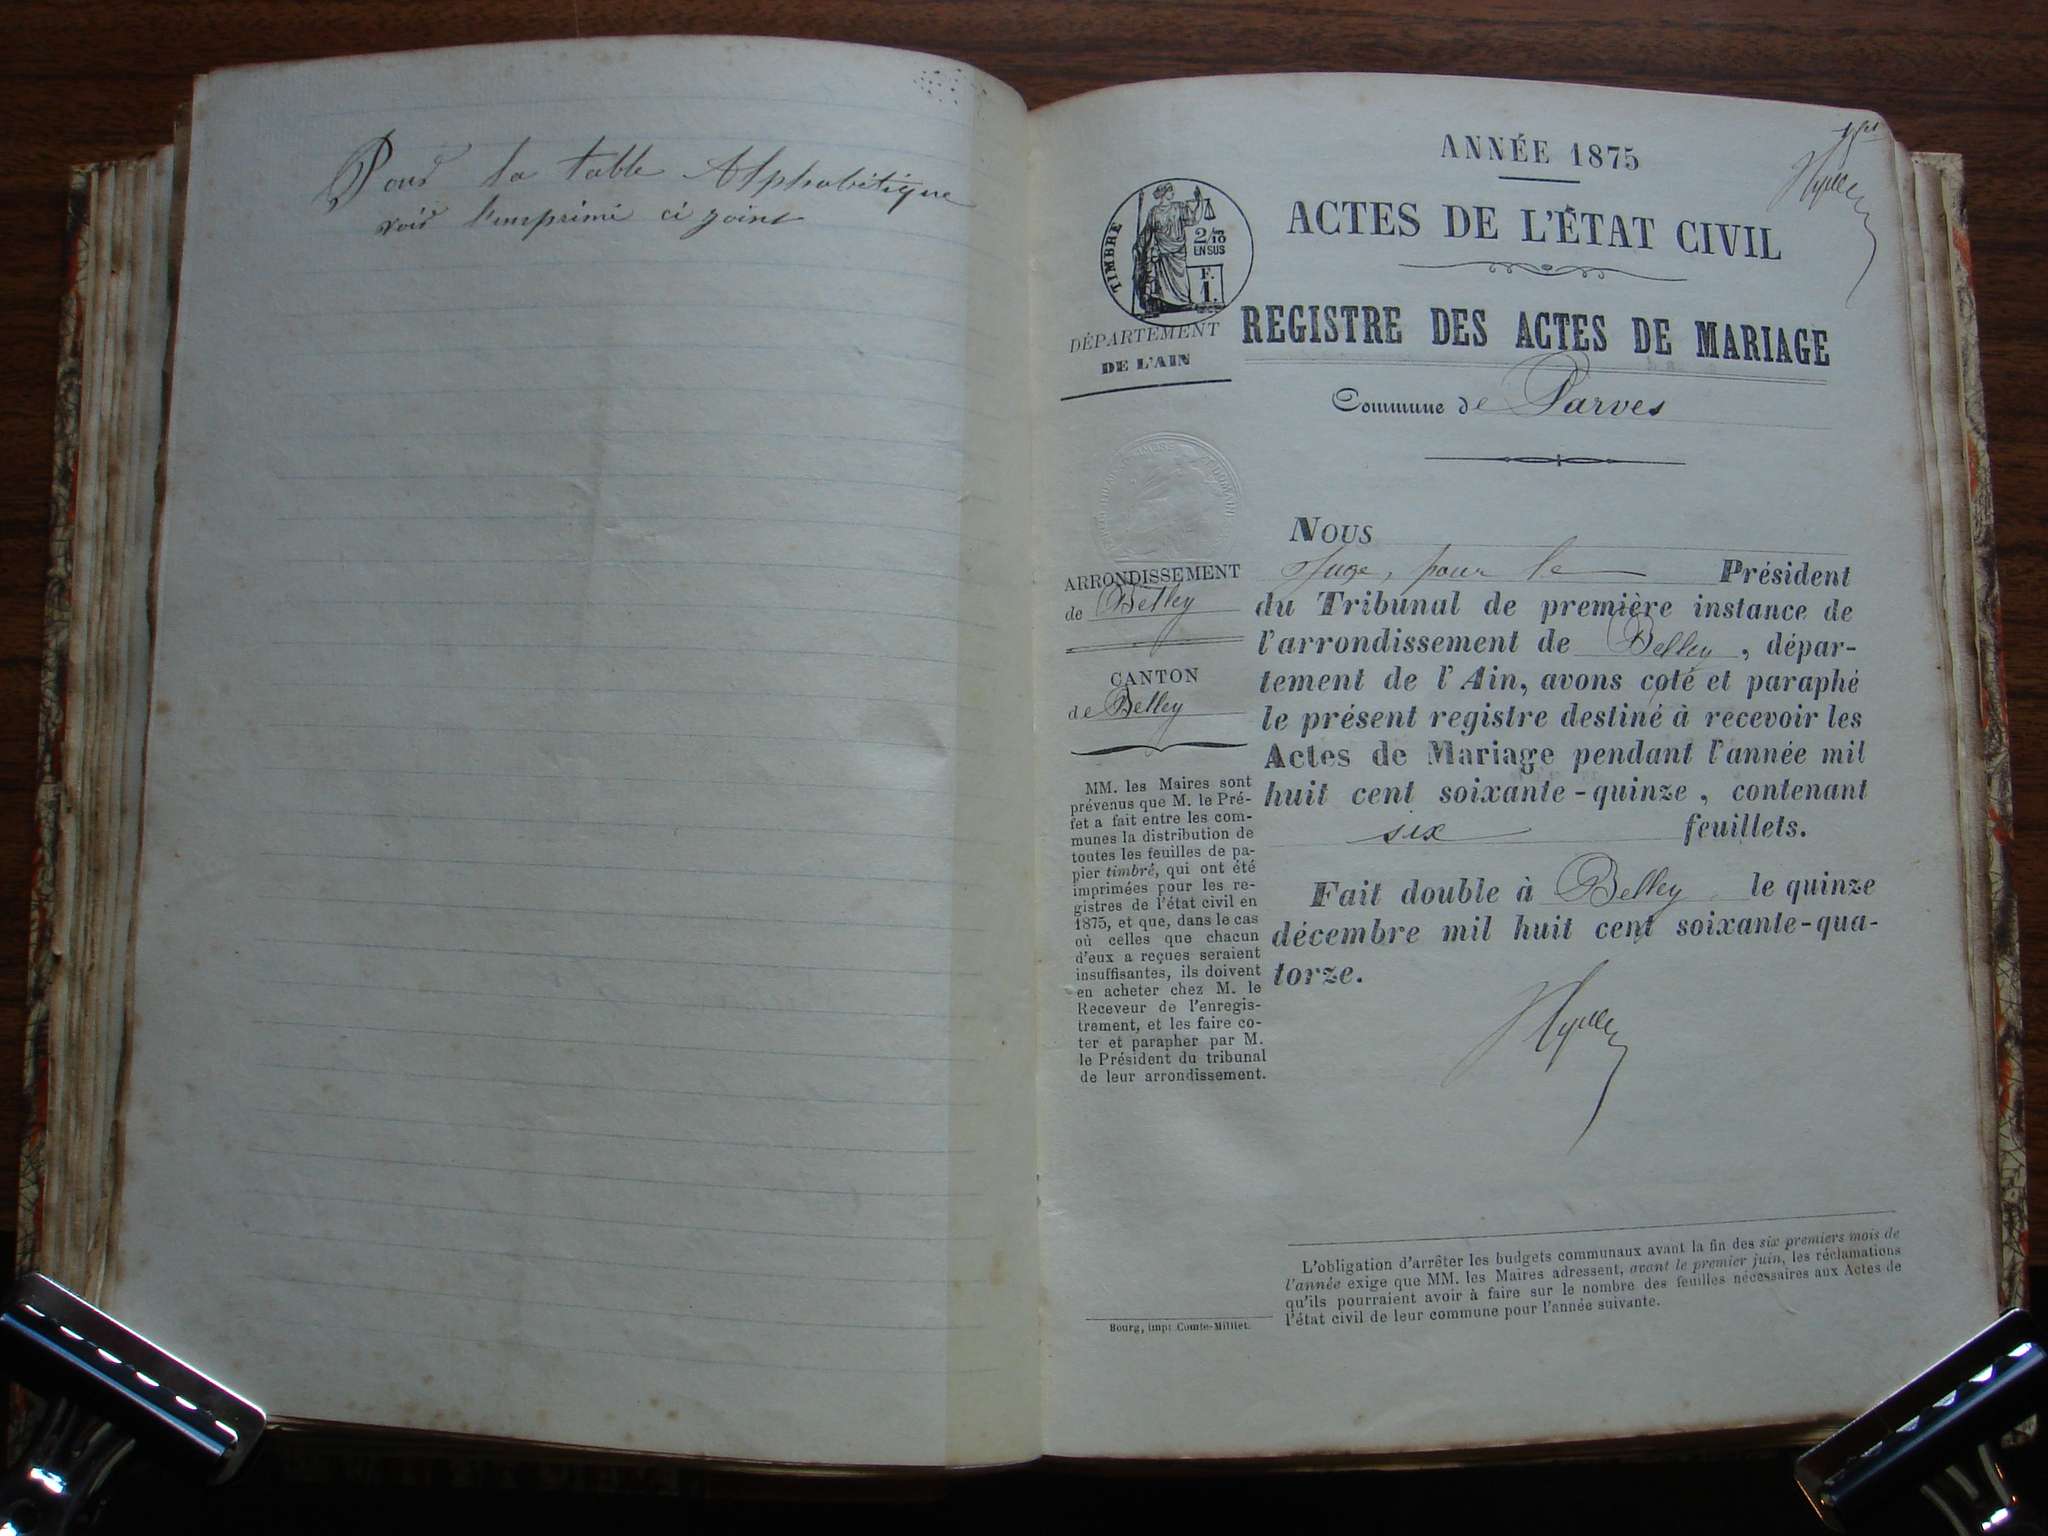 Pour la table Alphabétique
voir l'imprimé ci joint
1er
ANNÉE 1875
ACTES DE L'ÉTAT CIVIL
REGISTRE DES ACTES DE MARIAGE
Commune de Parves
TIMBRE
2/10
EN SUS
F.
1.
DÉPARTEMENT
DE L'AIN
ARRONDISSEMENT
de Belley
CANTON
de Belley
MM. les Maires sont
prévenus que M. le Pré-
fet a fait entre les com-
munes la distribution de
toutes les feuilles de pa-
pier timbré, qui ont été
imprimées pour les re-
gistres de l'état civil en
1875, et que, dans le cas
où celles que chacun
d'eux a reçues seraient
insuffisantes, ils doivent
en acheter chez M. le
Receveur de l'enregis-
trement, et les faire co-
ter et parapher par M.
le Président du tribunal
de leur arrondissement.
NOUS
Juge, pour le Président
du Tribunal de première instance de
l'arrondissement de Belley, dépar-
tement de l'Ain, avons coté et paraphé
le présent registre destiné à recevoir les
Actes de Mariage pendant l'année mil
huit cent soixante-quinze, contenant
six feuillets.
Fait double à Belley le quinze
décembre mil huit cent soixante-qua-
torze.
L'obligation d'arrêter les budgets communaux avant la fin des six premiers mois de
l'année exige que MM. les Maires adressent, avant le premier juin, les réclamations
qu'ils pourraient avoir à faire sur le nombre des feuilles nécessaires aux Actes de
l'état civil de leur commune pour l'année suivante.
Bourg, imp: Comte-Milliet.